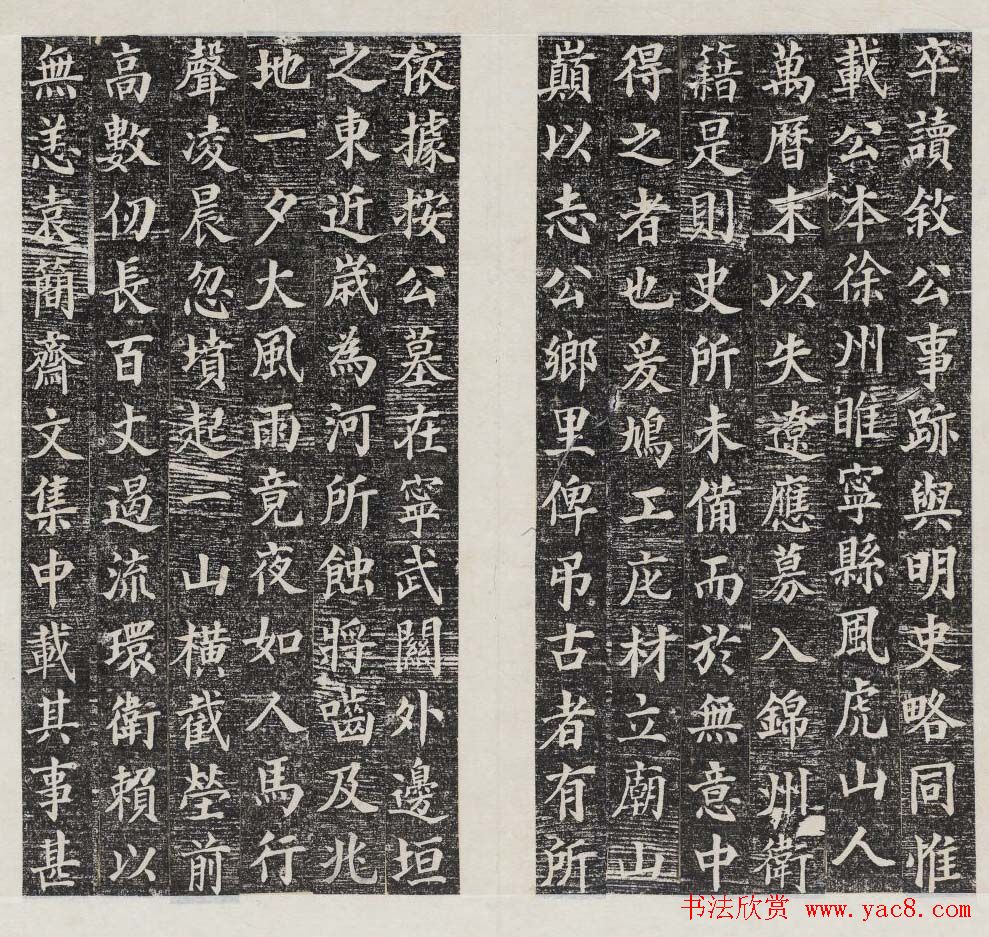 卒讀敘公事跡與明史略同惟
載公本徐州睢寧縣風虎山人
萬曆末以失遼應募入錦州衛
籍是則史所未備而於無意中
得之者也爰鳩工庀材立廟山
巔以志公鄉里俾弔古者有所
依據按公墓在寧武關外邊垣
之東近歲為河所蝕將齧及兆
地一夕大風雨竟夜如人馬行
聲凌晨忽墳起一山橫截塋前
高數仞長百丈遏流環衛賴以
無恙袁簡齋文集中載其事甚
书法欣赏 www.yac8.com